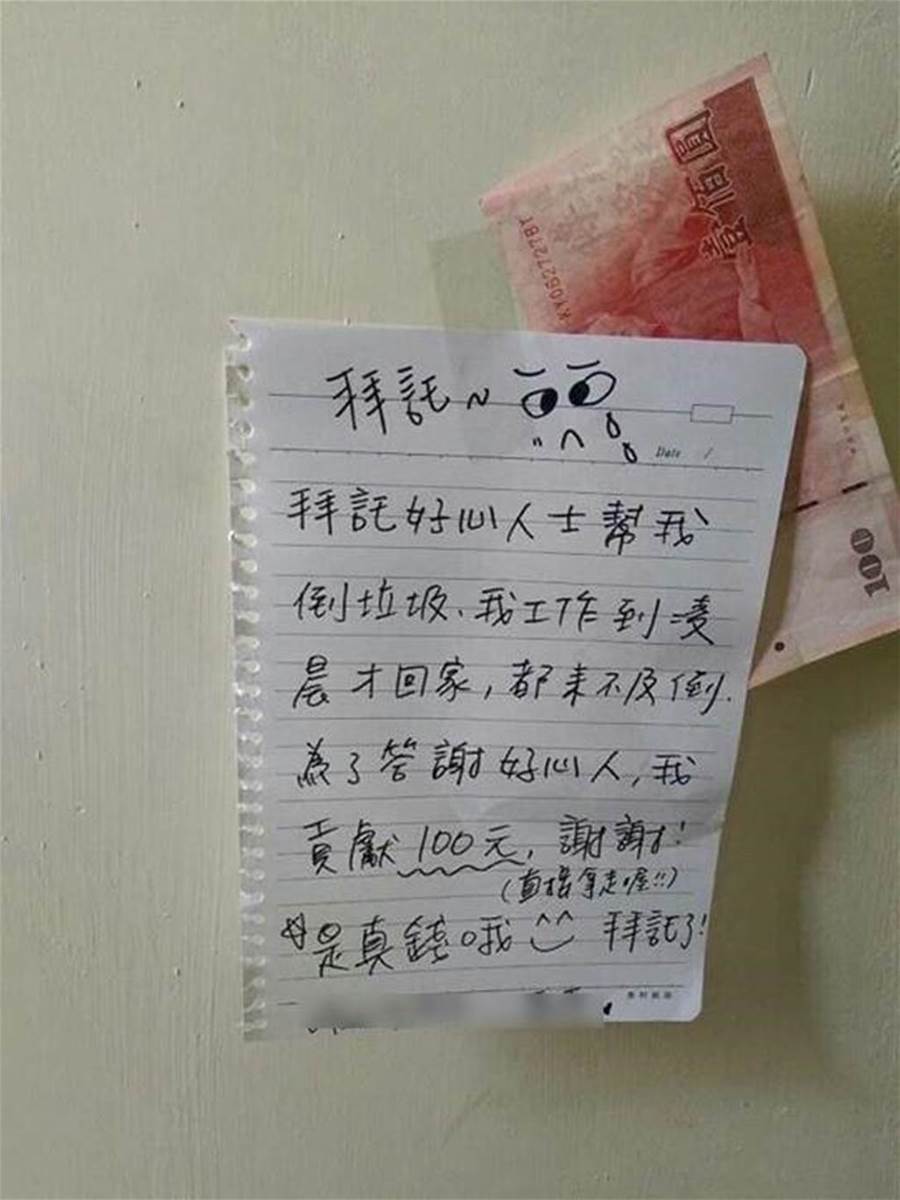 壹佰圓
KY052727BY
100
拜託~
Date /
拜託好心人士幫我
倒垃圾、我工作到凌
晨才回家,都來不及倒.
為了答謝好心人,我
貢獻100元,謝謝!
(直接拿走喔!!)
是真錢哦^^ 拜託了!